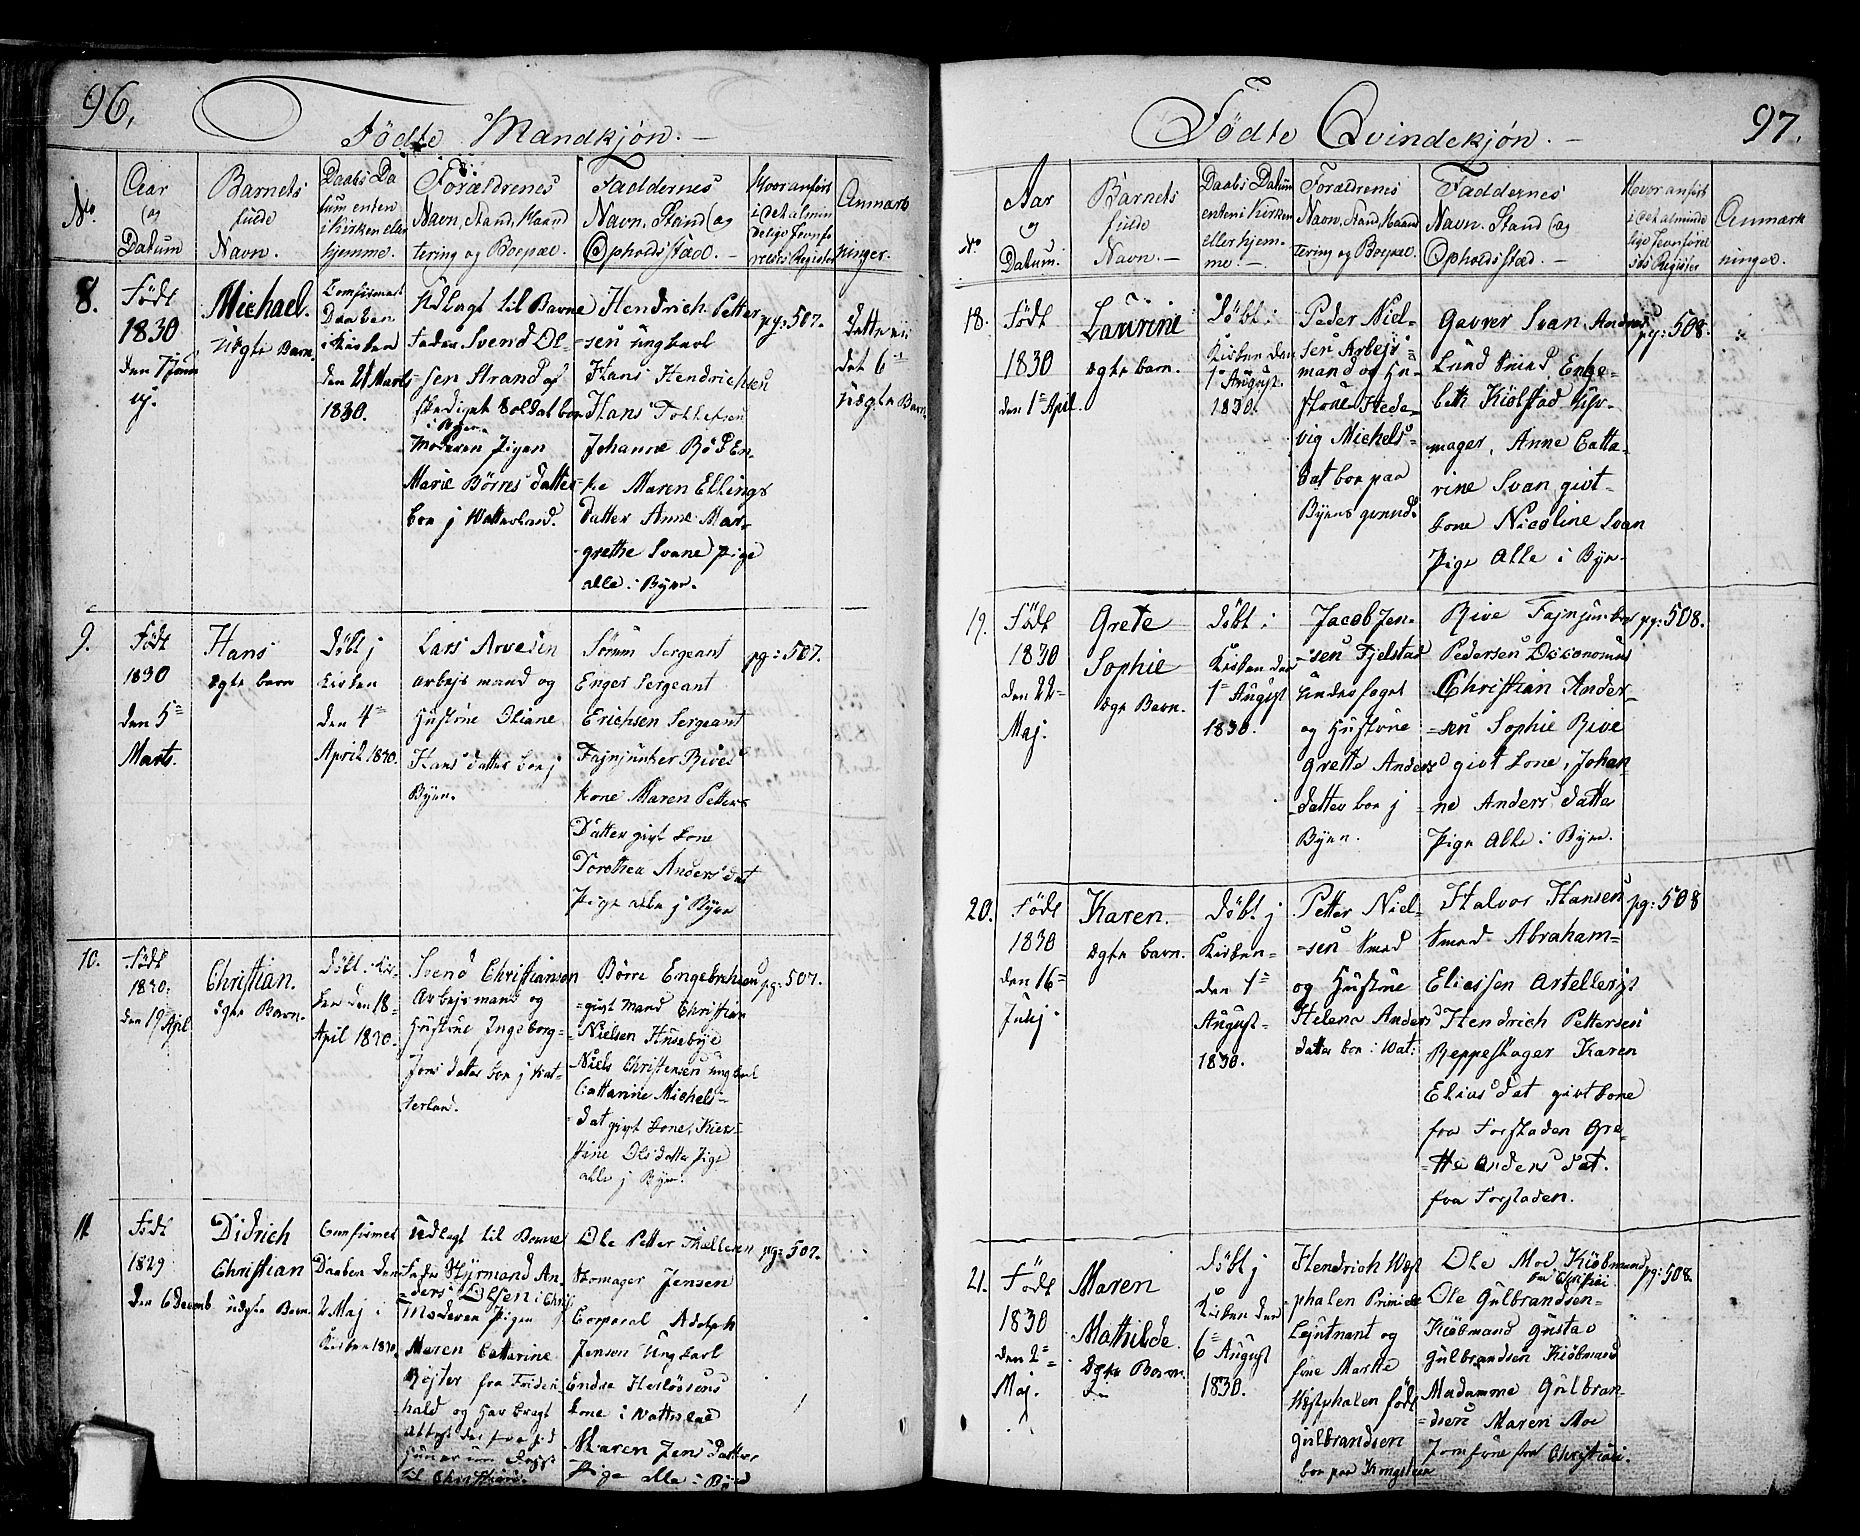 96.
Fødte Mandkjøn.
No
Aar og Datum
Barnets fulde Navn.
Daabs Datum enten i Kirken eller hjemme.
Forældrenes Navn, Stand, Haandtering og Boepæl.
Faddernes Navn, Stand og Opholdssted.
Hvor anført i det almindelige Jevnførelses Register
Anmærkninger.
8.
Født
1830
den 7 Januarj.
Michael.
Uægte Barn.
Confirmert
Daaben
i Kirken
den 21 Marts
1830.
Udlagt til Barne
Fader Svend Ol-
sen Strand af
skediget Soldat boe
i Byen.
Moderen Pigen
Marie Børres datter
boe j Watterland.
Hendrich Petter
sen ungkarl
Hans Hendrichsen
Hans Tollefsen
Johanne Rød En-
ke Maren Ellings
datter Anne Mar-
grethe Svane Pige
alle i Byen.
pg: 507.
Dette er
det 6te
Uægte Barn
9.
Født
1830
den 5=
Marts.
Hans
ægte barn
Døbt j
Kirken
den 4=
April 1830.
Lars Arvesen
arbejsmand og
Hustrue Oliane
Hans datter boe j
Byen.
Sørum Sergeant
Enger Sergeant
Erichsen Sergeant
Fajnjunker Rives
kone Maren Petters
Datter givt kone
Dorothea Anders dat
Pige alle j Byen
pg: 507.
10.
Født
1830.
den 19 April
Christian.
ægte Barn.
Døbt i Kir-
ken den 18
April 1830.
Svend Christianson
Arbejsmand og
Hustrue Ingeborg
Jons datter boe j Wat-
terland.
Børre Engebrehsen
givt Mand Christian
Nielsen Husebye
Niels Christensen ungkarl
Cattarine Michels-
dat givt kone, Kier-
stine Ols datter Pige
alle j Byen.
pg: 507.
11
Født
1829
den 6 Decemb
Didrich
Christian
uægte Barn.
Confirmert
Daaben den
2 Maj i
Kirken 1830.
Udlagt til Barne
Fader Styrmand An-
ders Olsen i Christi
Moderen Pigen
Maren Cattarine
Røjter fra Friderich-
hald og har bragt
Attest der fra
til Christiania.
Ole Petter Tkellesen
Skomager Jensen
Corporal Adolph
Jensen Ungkarl
Endre Herløssens
kone i Watterland
Maren Jens datter
Pige alle i Byen
pg: 507.
97.
Fødte Qvindekjøn.
No
Aar og Datum.
Barnets fulde Navn.
Daabs Datum enten i Kirken eller hjemme.
Forældrenes Navn, Stand, Haandtering og Boepæl.
Faddernes Navn, Stand og Opholdssted.
Hvor anført i det almindelige Jevnførelses Register
Anmærkninger.
18.
Født
1830
den 1= April.
Laurine
ægte barn.
Døbt i
Kirken den
1= August.
1830.
Peder Niel-
sen Arbejs-
mand og Hu-
strue Hede-
vig Michels-
dat boe paa
Byens grund.
Gavrer Svan Anders
Lund Smed Enge-
beth Kiølstad Uhr-
mager, Anne Catta-
rine Svan givt
kone Nicoline Svan
Pige Alle i Byn.
pg: 508.
19.
Født
1830
den 22=
Maj.
Grete
Sophie
ægte Barn.
Døbt i
Kirken den
1= August
1830.
Jacob Jen-
sen Fjelstad
Underfoget
og Hustrue
Grette Anders
datter boe j
Byen.
Rive Fajnjunker
Pedersen Oeconomus
Christian Ander-
sen Sophie Rive
givt kone, Johan-
ne Anders datte
Pige Alle i Byen.
pg: 508.
20.
Født
1830
den 16=
Julj.
Karen.
ægte barn.
Døbt j
Kirken
den 1=
August
1830.
Petter Niel-
sen Smed
og Hustrue
Helena Anders
datter boe i Wat:
Halvor Hansen
Smed Abraham
Eliassen Artellerist
Hendrich Pettersen
Reppeslager Karen
Elias dat givt kone
fra Forstaden Gre-
tte Anders dat.
fra Forstaden.
pg: 508
21.
Født
1830
den 2=
Maj.
Maren
Mathilde
ægte Barn
Døbt j
Kirken den
6= August
1830.
Hendrich West
phalen Primier
Lejutnant og
frue Marthe
Westphalen født
Gulbrandsen
boe paa Kongsteen
Ole Moe Kiøbmand
fra Christiai
Ole Gulbrandsen
Kiøbmand Gustav
Gulbrandsen Kiøbmand
Madamme Gulbran-
dsen Maren Moe
Jomfrue fra Christiai.
pg: 508.